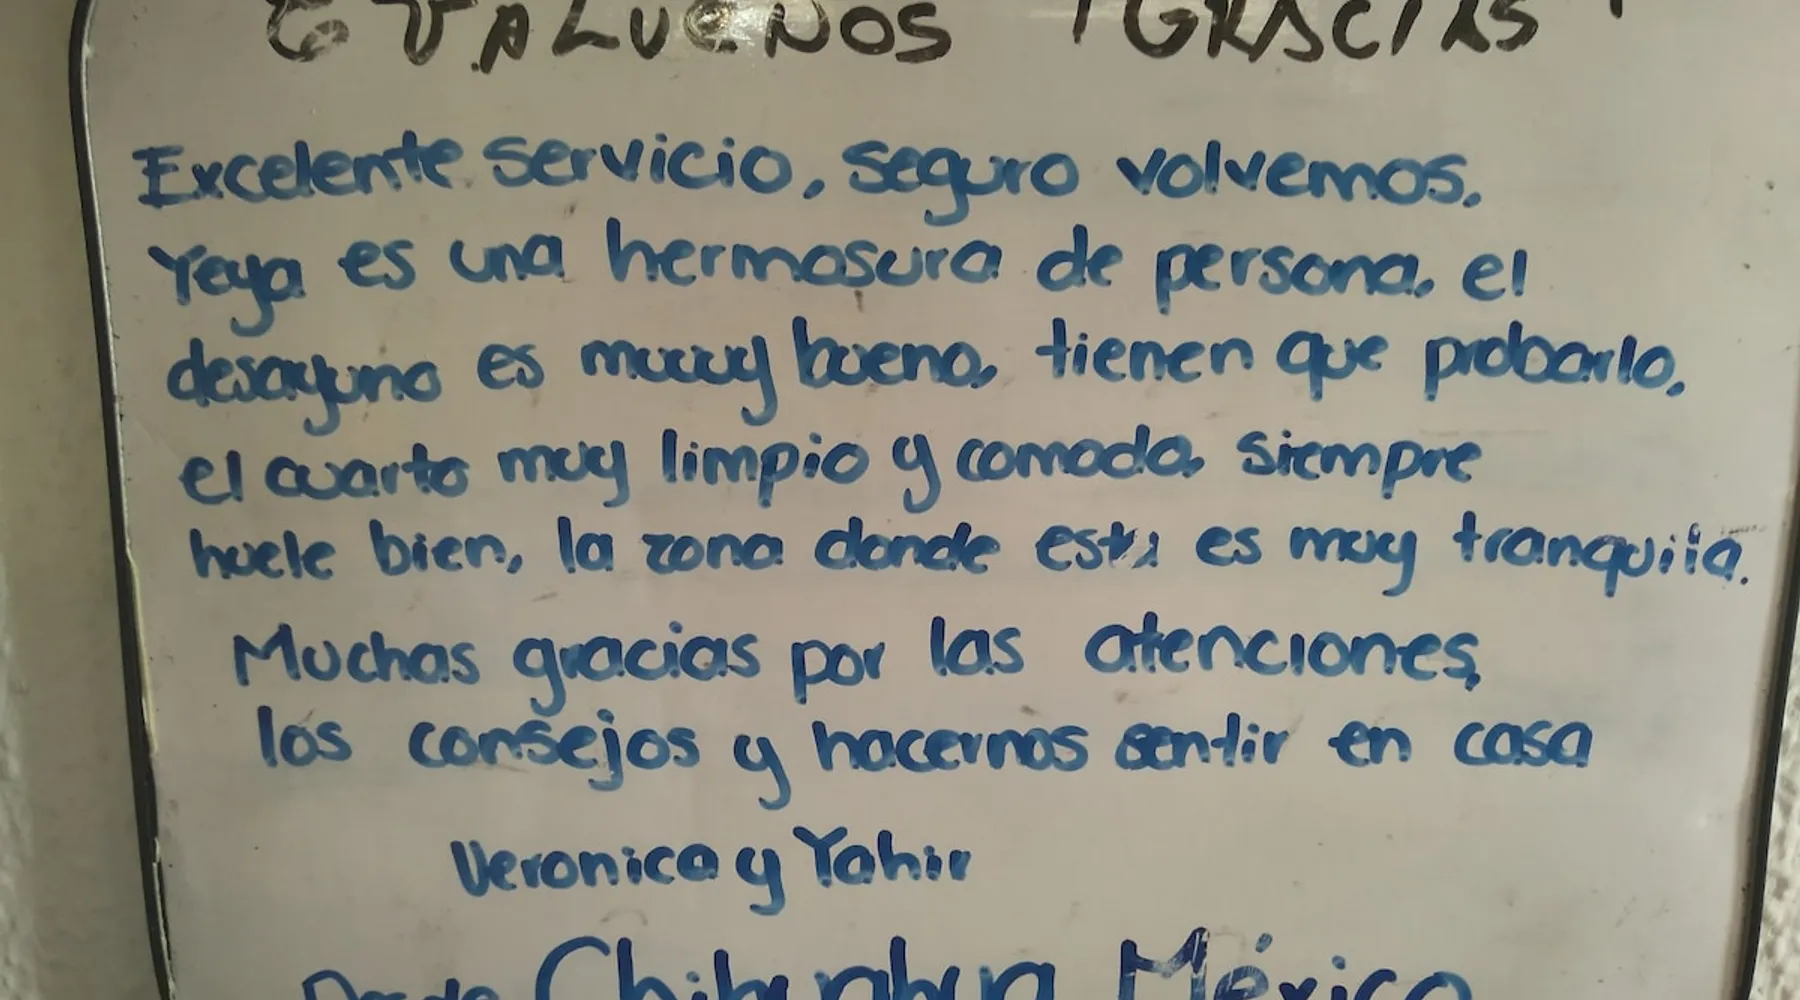 EVALUENOS ¡GRACIAS!
Excelente servicio, seguro volvemos.
Yeya es una hermosura de persona, el
desayuno es muuuy bueno, tienen que probarlo,
el cuarto muy limpio y comodo, siempre
huele bien, la zona donde esta es muy tranquila.
Muchas gracias por las atenciones,
los consejos y hacernos sentir en casa
Veronica y Yahir
Desde Chihuahua México